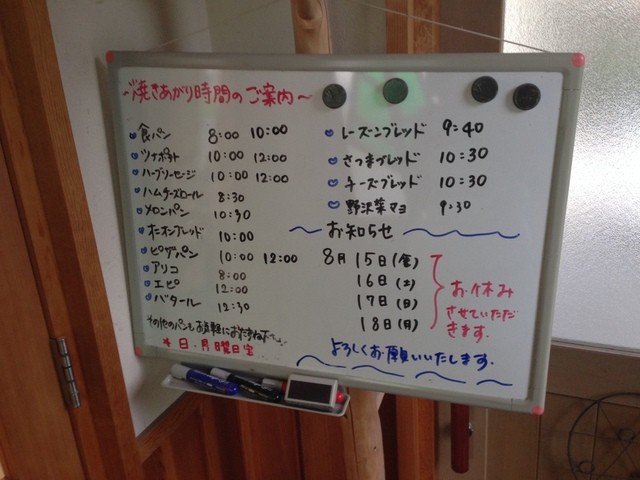 ～焼きあがり時間のご案内～
食パン 8:00 10:00
ツナポテト 10:00 12:00
ハーブソーセージ 10:00 12:00
ハムチーズロール 8:30
メロンパン 10:30
オニオンブレッド 10:00
ピザパン 10:00 12:00
アリコ 8:00
エピ 12:00
バタール 12:30
その他のパンもお気軽におたずね下さい
日・月曜日定
レーズンブレッド 9:40
さつまブレッド 10:30
チーズブレッド 10:30
野沢菜マヨ 9:30
～お知らせ～
8月15日(金)
16日(土)
17日(日)
18日(月)
お休み
させていただ
きます。
よろしくお願いいたします。